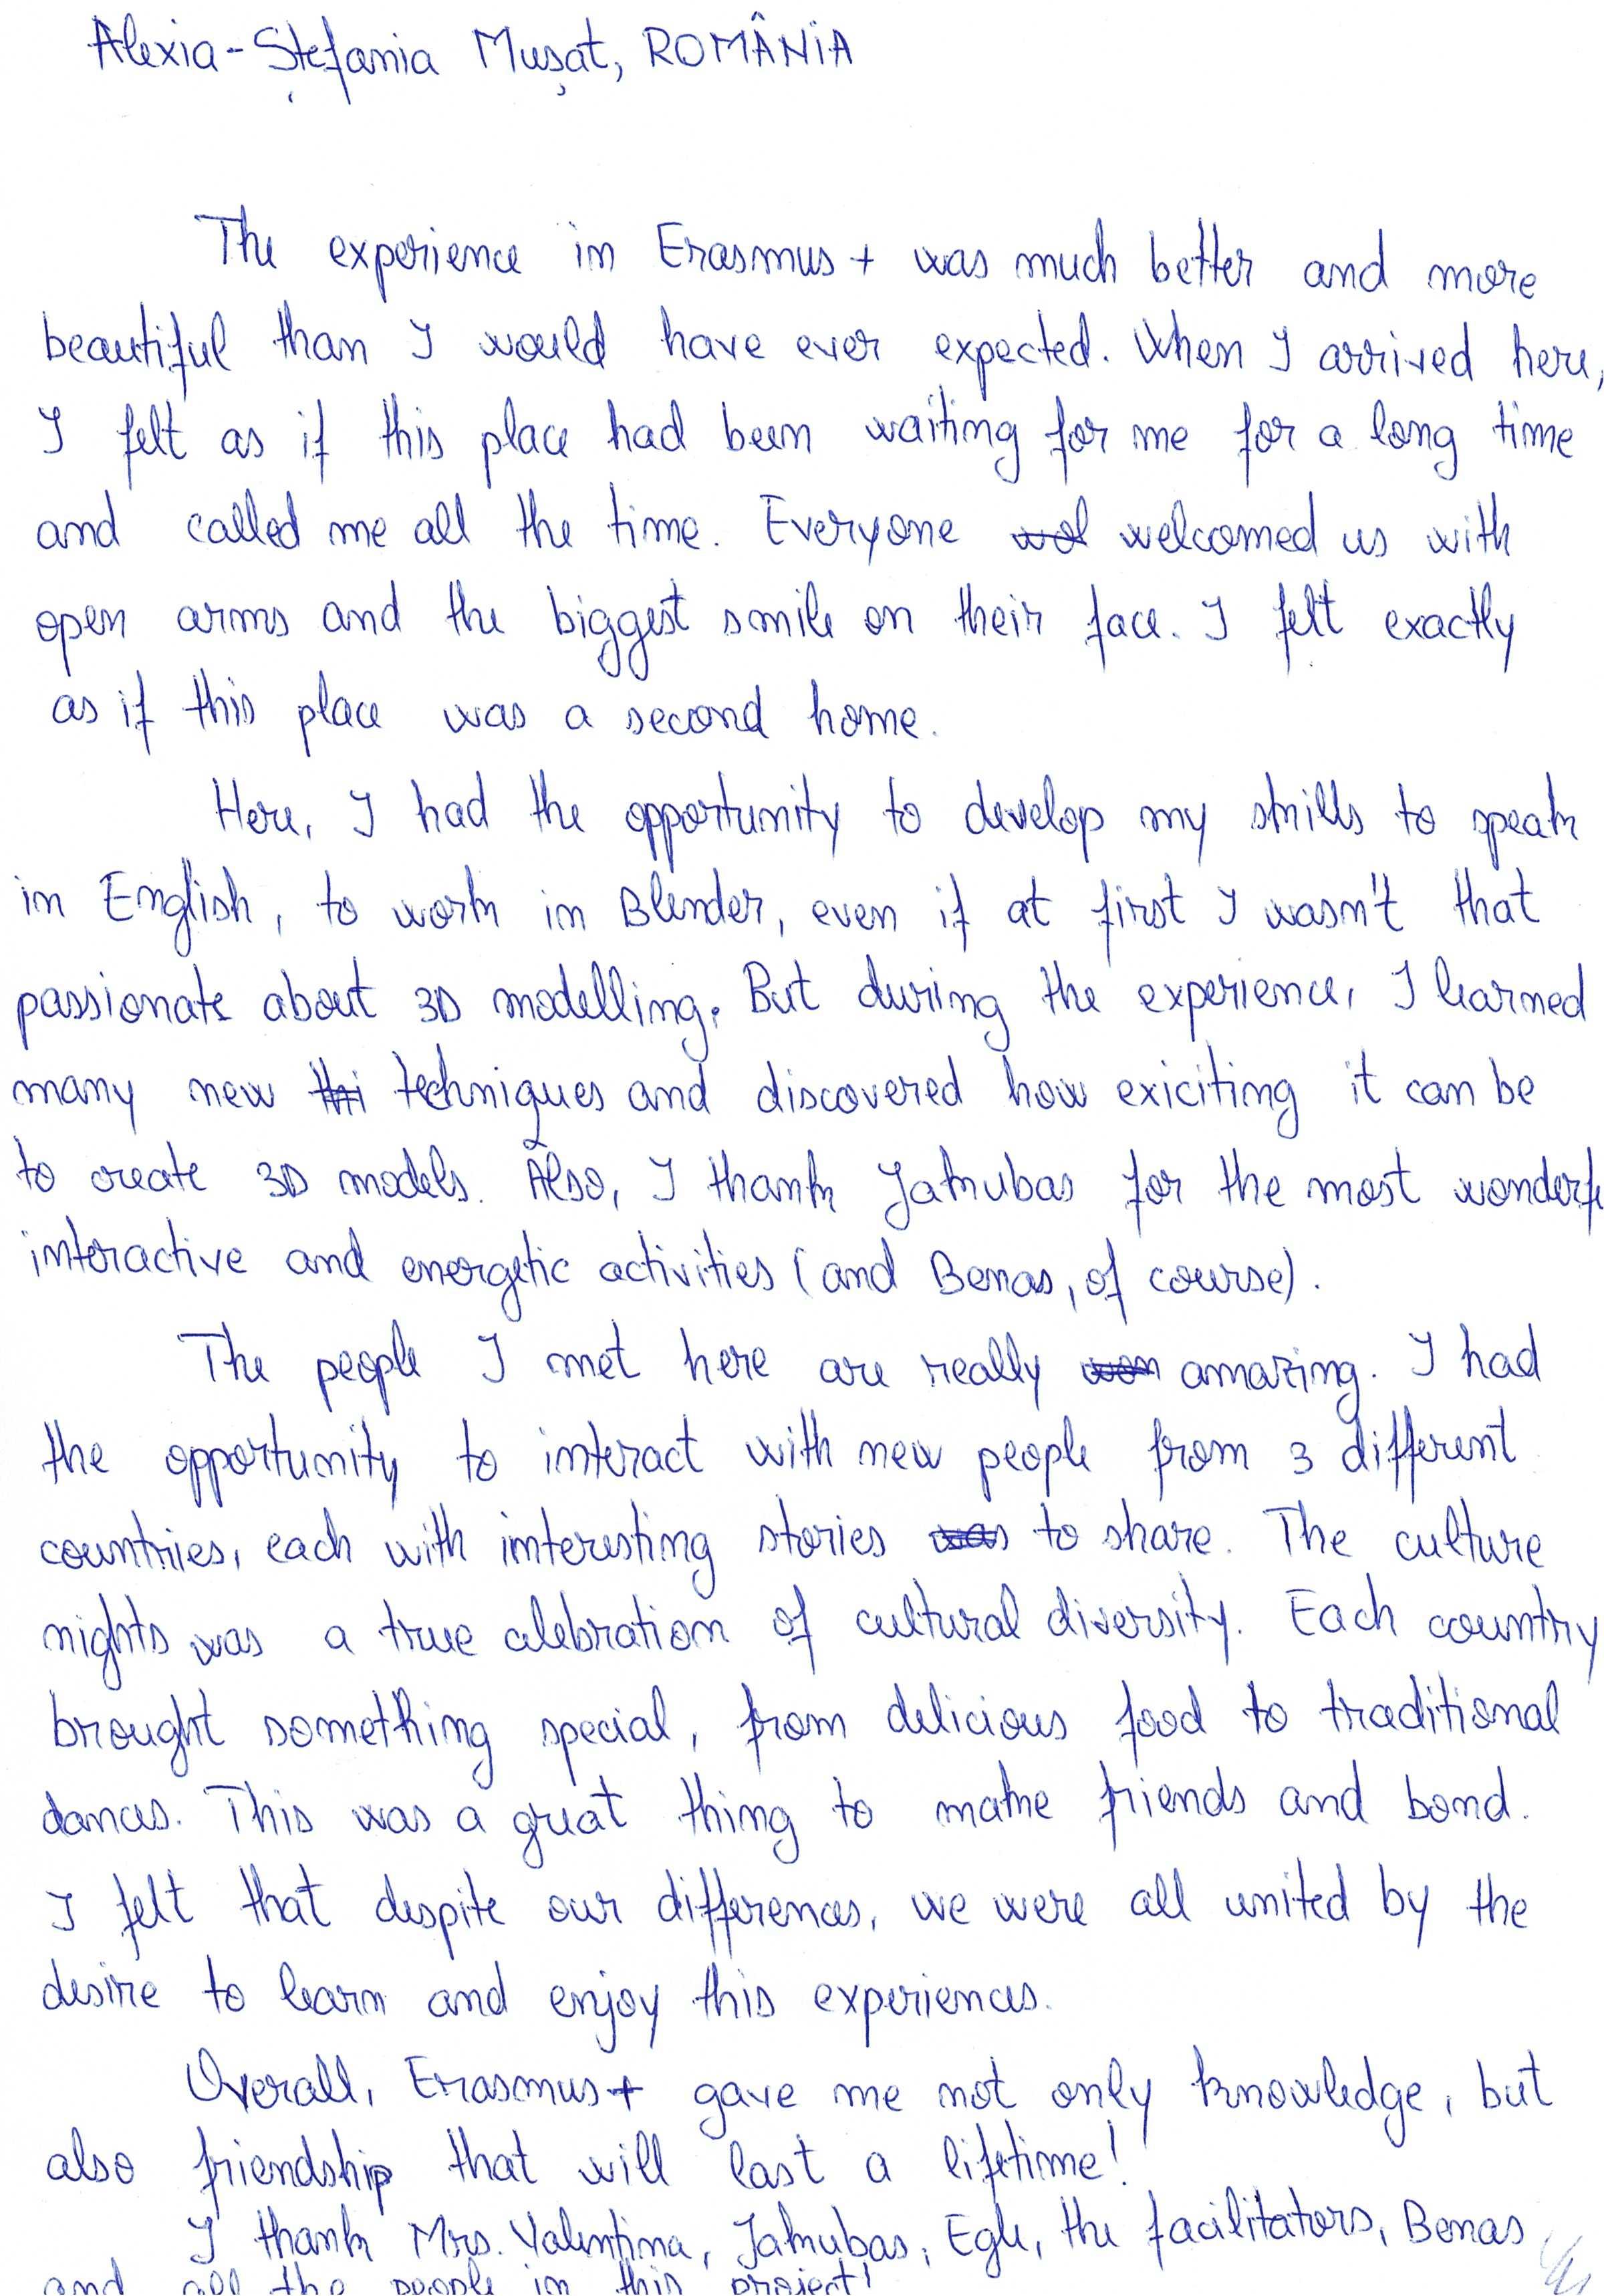 Alexia-Ștefania Mușat, ROMÂNIA
The experience in Erasmus+ was much better and more
beautiful than I would have ever expected. When I arrived here,
I felt as if this place had been waiting for me for a long time
and called me all the time. Everyone wol welcomed us with
open arms and the biggest smile on their face. I felt exactly
as if this place was a second home.
Here, I had the opportunity to develop my skills to speak
in English, to work in Blender, even if at first I wasn't that
passionate about 3D modelling. But during the experience, I learned
many new thi techniques and discovered how exiciting it can be
to create 3D models. Also, I thank Jakubas for the most wonderf
interactive and energetic activities (and Benas, of course).
The people I met here are really won amazing. I had
the opportunity to interact with new people from 3 different
countries, each with interesting stories was to share. The culture
nights was a true celebration of cultural diversity. Each country
brought something special, from delicious food to traditional
dances. This was a great thing to make friends and bond.
I felt that despite our differences, we were all united by the
desire to learn and enjoy this experiences.
Overall, Erasmus+ gave me not only knowledge, but
also friendship that will last a lifetime!
I thank Mrs. Valentina, Jakubas, Egle, the facilitators, Benas
and all the people in this project!